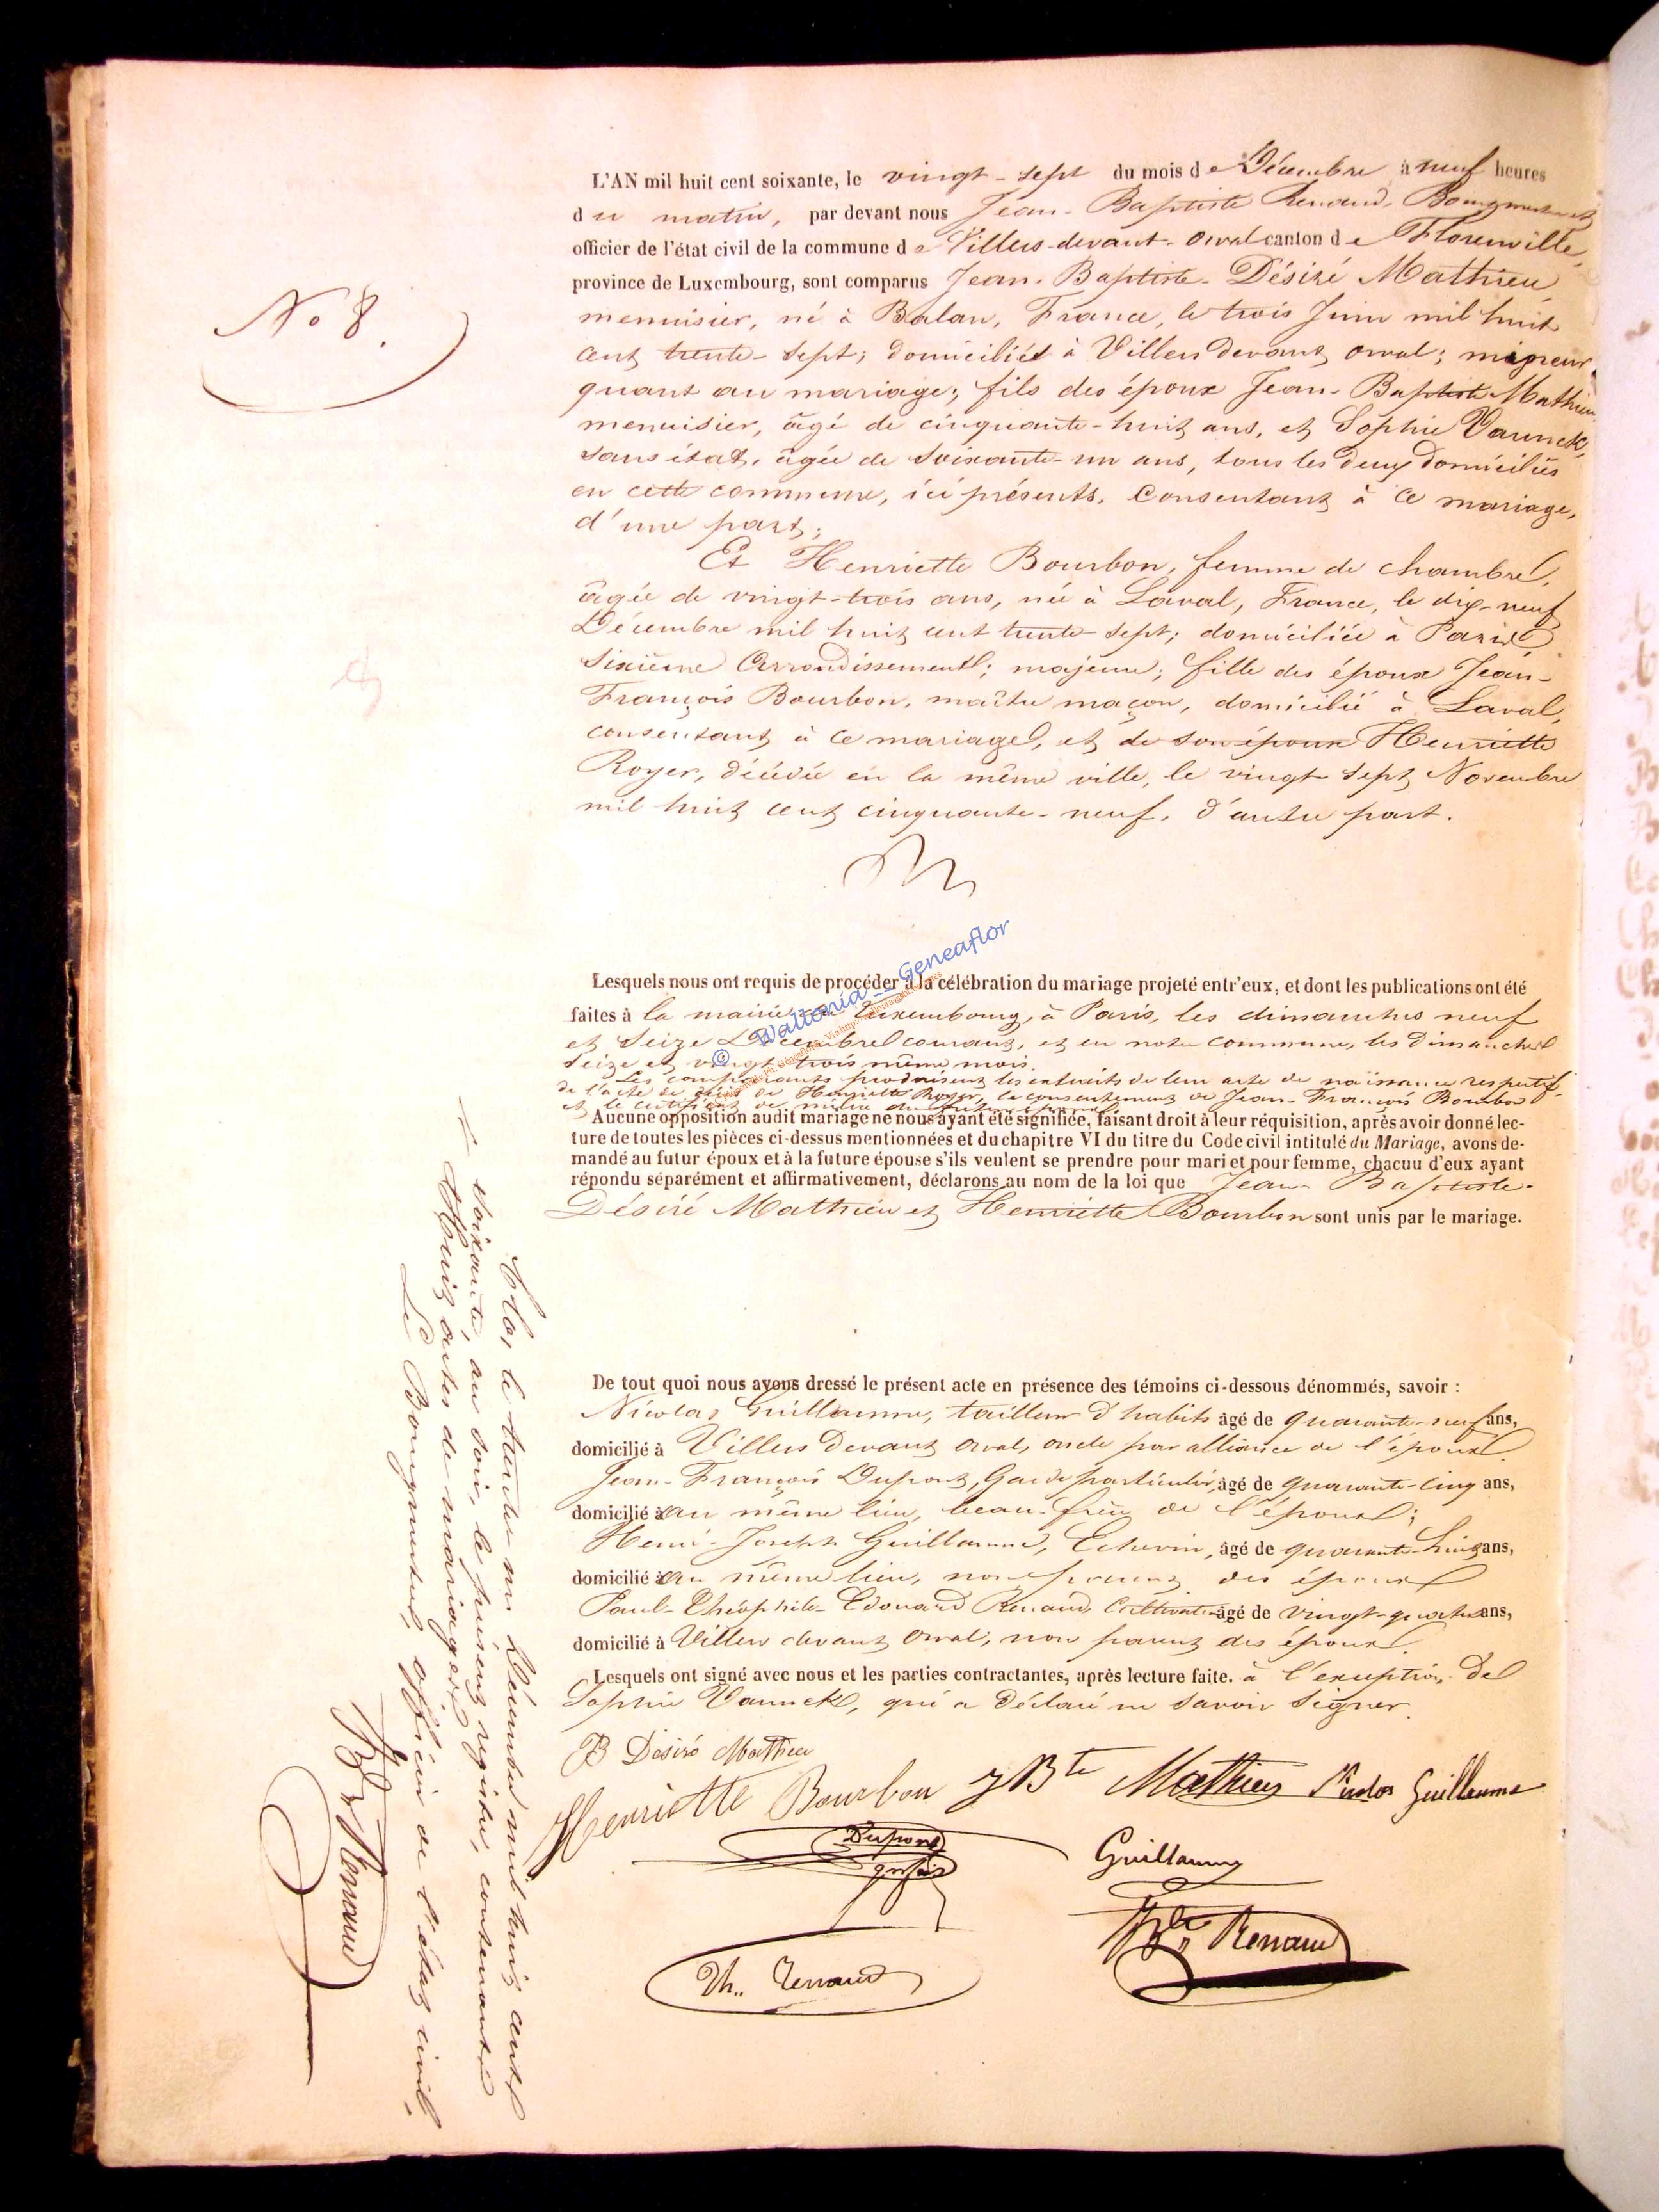 N° 8.
L'AN mil huit cent soixante, le vingt-sept du mois de Décembre à neuf heures
du matin, par devant nous Jean-Baptiste Renaud, Bourgmestre et
officier de l'état civil de la commune de Villers-devant-Orval canton de Florenville,
province de Luxembourg, sont comparus Jean-Baptiste-Désiré Mathieu
menuisier, né à Balan, France, le trois Juin mil huit
cent trente-sept; domicilié à Villers devant Orval; mineur
quant au mariage; fils des époux Jean-Baptiste Mathieu
menuisier, âgé de cinquante-huit ans, et Sophie Vannck,
sans état, âgée de soixante-un ans, tous les deux domiciliés
en cette commune, ici présents, consentant à ce mariage,
d'une part;
Et Henriette Bourbon, femme de chambre,
âgée de vingt-trois ans, née à Laval, France, le dix-neuf
Décembre mil huit cent trente-sept; domiciliée à Paris
Sixième Arrondissement; majeure; fille des époux Jean-
François Bourbon, maître maçon, domicilié à Laval,
consentant à ce mariage, et de son épouse Henriette
Royer, décédée en la même ville, le vingt-sept Novembre
mil huit cent cinquante-neuf, d'autre part.
© Wallonia - Geneaflor
Lesquels nous ont requis de procéder à la célébration du mariage projeté entr'eux, et dont les publications ont été
faites à la mairie Luxembourg, à Paris, les dimanches neuf
et Seize Décembre courant, et en notre commune, les Dimanches
Seize et vingt trois même mois.
Les comparants produisent les extraits de leur acte de naissance respectif,
de l'acte de décès de Henriette Royer, le consentement de Jean-François Bourbon
et le certificat de milice du futur époux.
Aucune opposition audit mariage ne nous ayant été signifiée, faisant droit à leur réquisition, après avoir donné lec-
ture de toutes les pièces ci-dessus mentionnées et du chapitre VI du titre du Code civil intitulé du Mariage, avons de-
mandé au futur époux et à la future épouse s'ils veulent se prendre pour mari et pour femme, chacuu d'eux ayant
répondu séparément et affirmativement, déclarons au nom de la loi que Jean-Baptiste-
Désiré Mathieu et Henriette Bourbon sont unis par le mariage.
De tout quoi nous ayons dressé le présent acte en présence des témoins ci-dessous dénommés, savoir :
Nicolas Guillaume, tailleur d'habits âgé de quarante-neuf ans,
domicilié à Villers devant Orval, oncle par alliance de l'époux
Jean-François Dupont, Garde particulier, âgé de quarante-cinq ans,
domicilié à au même lieu, beau-frère de l'époux;
Henri-Joseph Guillaume, Echevin, âgé de quarante-huit ans,
domicilié à au même lieu, non parent des époux
Paul-Théophile-Edouard Renaud, Cultivateur âgé de vingt-quatre ans,
domicilié à Villers devant Orval, non parent des époux.
Lesquels ont signé avec nous et les parties contractantes, après lecture faite. à l'exception de
Sophie Vannck, qui a déclaré ne savoir signer.
B Désiré Mathieu
Henriette Bourbon JBte Mathieu Nicolas Guillaume
Dupont Guillaume
Th.. Renaud JBte Renaud
Clos, le trente un Décembre mil huit cent
soixante, au soir, le présent registre, contenant
Huit actes de mariages.
Le Bourgmestre, officier de l'état civil,
JBte Renaud